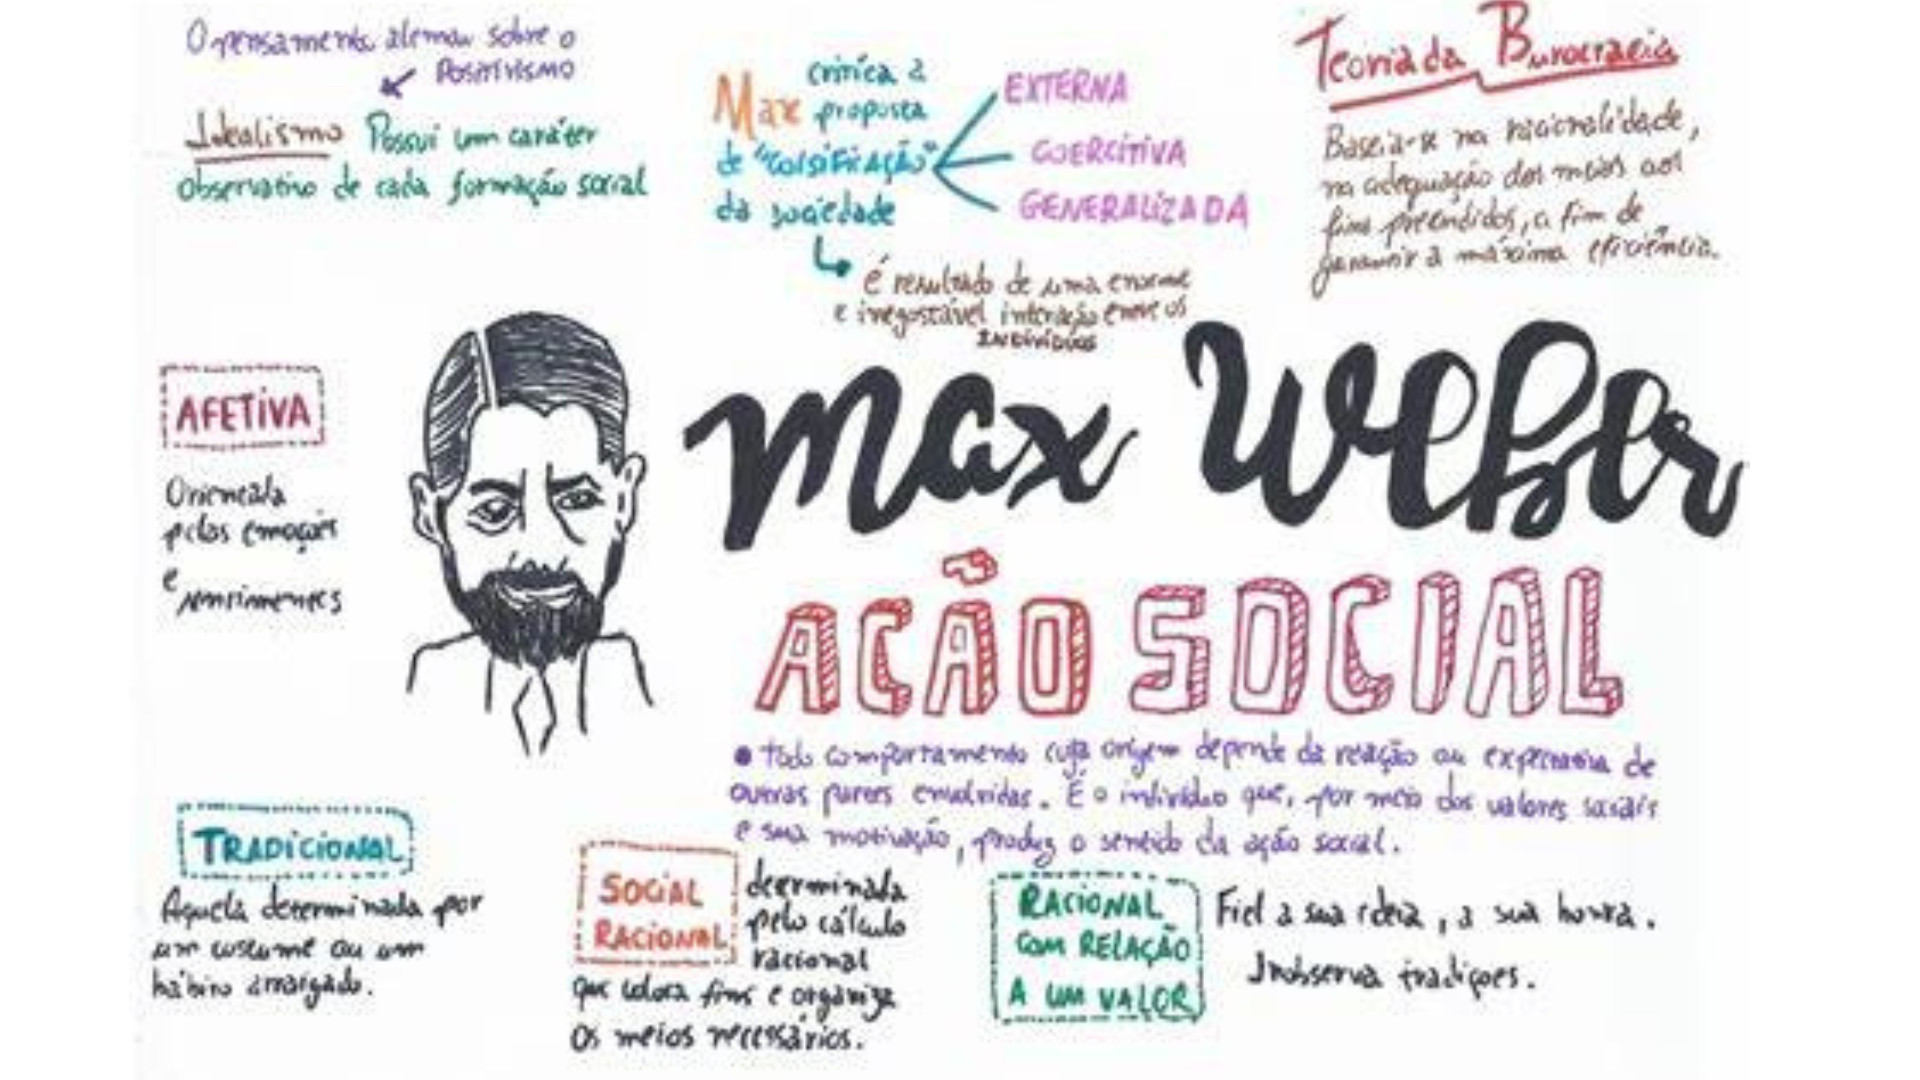 O pensamento alemão sobre o
POSITIVISMO
Idealismo Possui um caráter
observativo de cada formação social
Max crítica a
proposta
de "coisificação"
da sociedade
EXTERNA
COERCITIVA
GENERALIZADA
é resultado de uma enorme
e inegostável interação entre os
INDIVÍDUOS
Teoria da Burocracia
Baseia-se na racionalidade,
na adequação dos meios aos
fins pretendidos, a fim de
garantir a máxima eficiência.
Max Weber
AÇÃO SOCIAL
• todo comportamento cuja origem depende da reação ou expectativa de
outras partes envolvidas. É o indivíduo que, por meio dos valores sociais
e sua motivação, produz o sentido da ação social.
AFETIVA
Orientada
pelas emoções
e sentimentos
TRADICIONAL
Aquela determinada por
um costume ou um
hábito arraigado.
SOCIAL
RACIONAL
determinada
pelo cálculo
racional
que coloca fins e organiza
os meios necessários.
RACIONAL
com RELAÇÃO
A UM VALOR
Fiel a sua ideia, a sua honra.
Inobserva tradições.